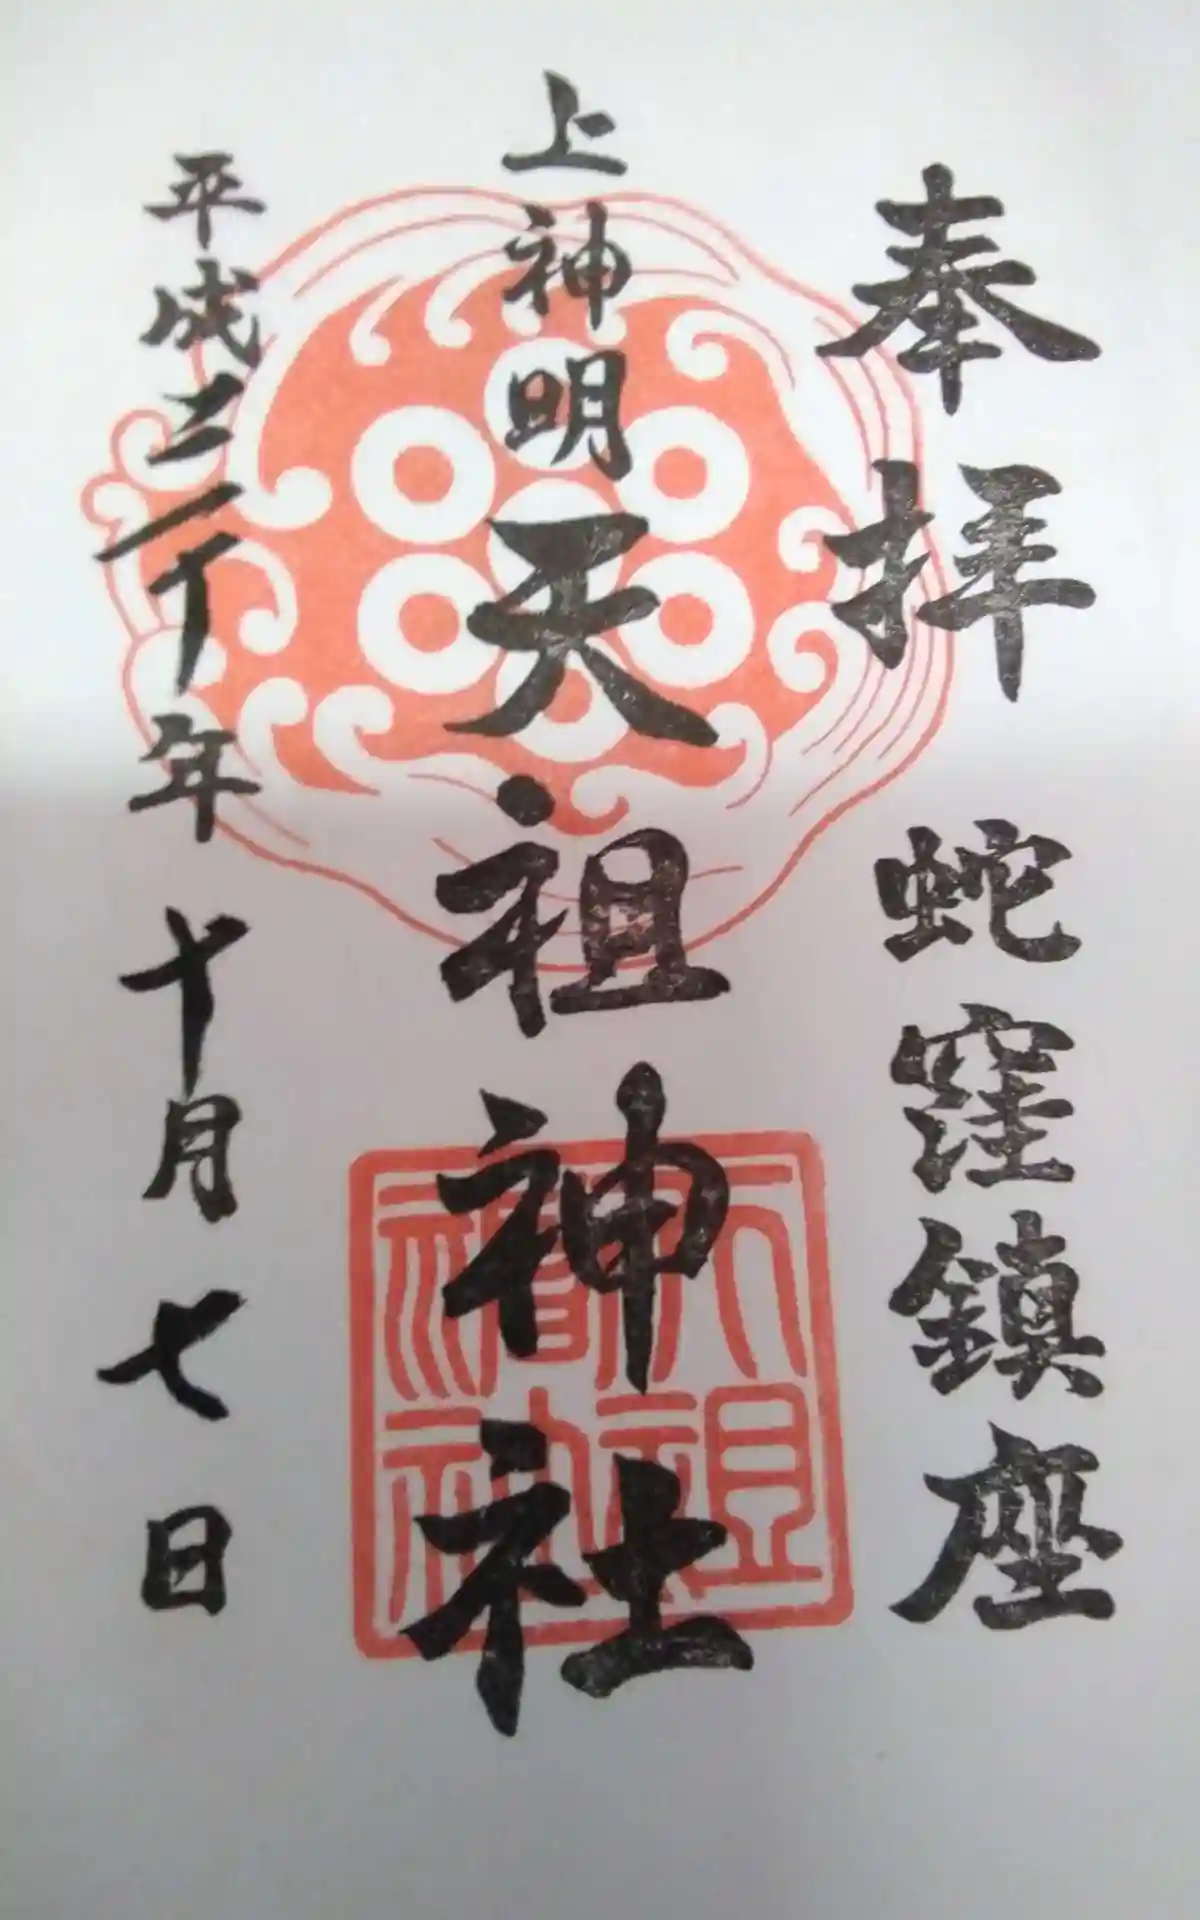 奉拝　蛇窪鎮座
上神明天祖神社
平成三十年十月七日
天祖
神社